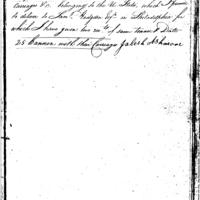 Carriages &c. belonging to the U. States, which I promise
to deliver to Saml. Hodgdon Esqr. in Philadelphia for
which I have given two rects. of same tenor & Date
25 Cannon with their Carriages Jaleth Ishmore